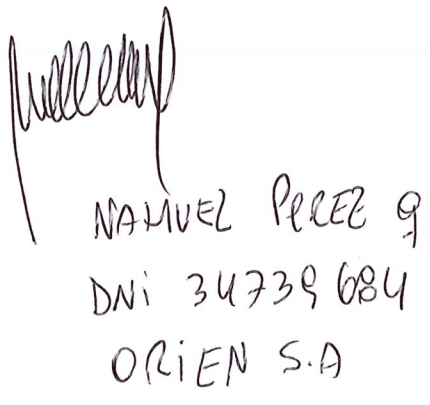 NAHUEL PEREZ g
DNi 34739684
ORiEN S.A